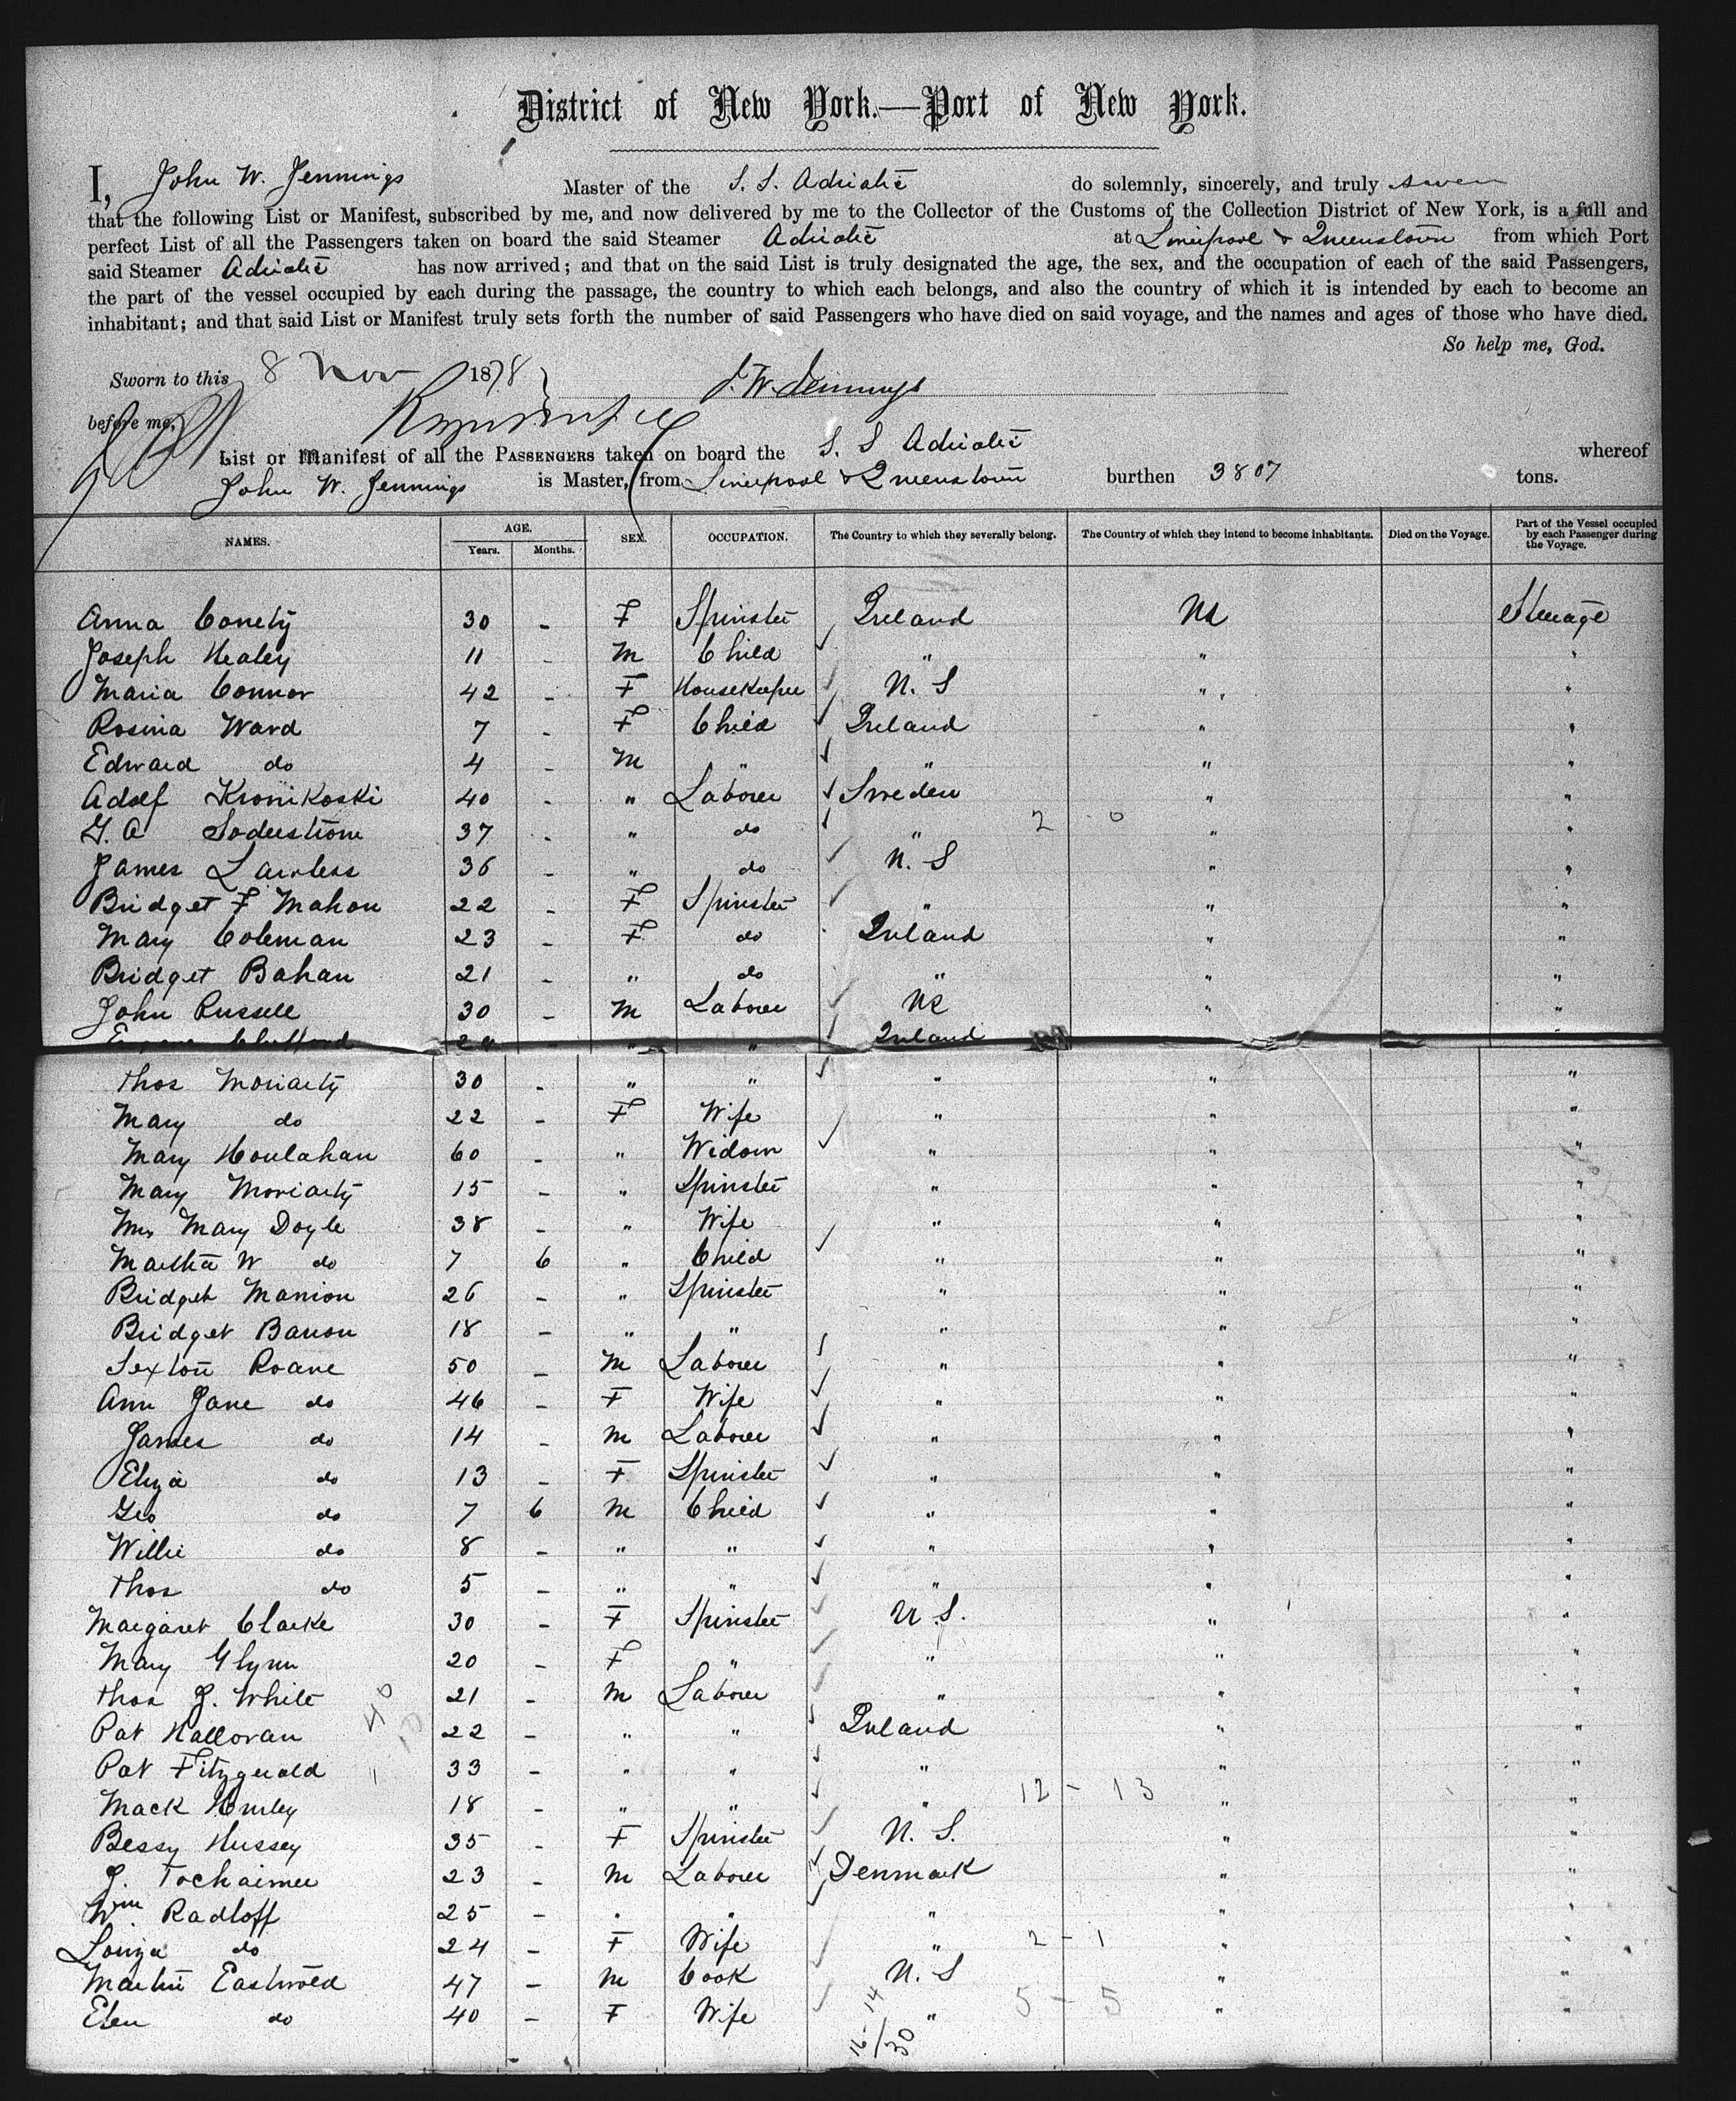 District of New York.—Port of New York.
I, John W. Jennings Master of the S. S. Adriatic do solemnly, sincerely, and truly swear
that the following List or Manifest, subscribed by me, and now delivered by me to the Collector of the Customs of the Collection District of New York, is a full and
perfect List of all the Passengers taken on board the said Steamer Adriatic at Liverpool & Queenstown from which Port
said Steamer Adriatic has now arrived; and that on the said List is truly designated the age, the sex, and the occupation of each of the said Passengers,
the part of the vessel occupied by each during the passage, the country to which each belongs, and also the country of which it is intended by each to become an
inhabitant; and that said List or Manifest truly sets forth the number of said Passengers who have died on said voyage, and the names and ages of those who have died.
So help me, God.
Sworn to this 8 Nov 1878 J. W. Jennings
before me,
List or Manifest of all the PASSENGERS taken on board the S. S Adriatic whereof
John W. Jennings is Master, from Liverpool & Queenstown burthen 3807 tons.
NAMES. AGE. Years. Months. SEX. OCCUPATION. The Country to which they severally belong. The Country of which they intend to become inhabitants. Died on the Voyage. Part of the Vessel occupied by each Passenger during the Voyage.
Anna Conety 30 - F Spinster Ireland US Steerage
Joseph Healey 11 - M Child " " "
Maria Connor 42 - F Housekeeper U. S " "
Rosina Ward 7 - F Child Ireland " "
Edward do 4 - M " " " "
Adolf Kronikoski 40 - " Laborer Sweden " "
G. A Soderstrom 37 - " do " 2 - 0 " "
James Lawless 36 - " do U. S " "
Bridget F Mahon 22 - F Spinster " " "
Mary Coleman 23 - F do Ireland " "
Bridget Bahan 21 - " do " " "
John Russell 30 - M Laborer US " "
Clifford " " Ireland
Thos Moriarty 30 - " " " " "
Mary do 22 - F Wife " " "
Mary Houlahan 60 - " Widow " " "
Mary Moriarty 15 - " Spinster " " "
Mrs Mary Doyle 38 - " Wife " " "
Martha W do 7 6 " Child " " "
Bridget Manion 26 - " Spinster " " "
Bridget Baron 18 - " " " " "
Sexton Roane 50 - M Laborer " " "
Ann Jane do 46 - F Wife " " "
James do 14 - M Laborer " " "
Eliza do 13 - F Spinster " " "
Geo do 7 6 M Child " " "
Willie do 8 - " " " " "
Thos do 5 - " " " " "
Margaret Clarke 30 - F Spinster U S. " "
Mary Glynn 20 - F " " " "
Thos J. White 21 - M Laborer " " "
Pat Halloran 22 - " " Ireland " "
Pat Fitzgerald 33 - " " " " "
Mack Hurley 18 - " " " 12 - 13 " "
Bessy Hussey 35 - F Spinster U. S. " "
J. Tochaimer 23 - M Laborer Denmark " "
Wm. Radloff 25 - " " " " "
Louiza do 24 - F Wife " 2 - 1 " "
Martin Eastwood 47 - M Cook U. S " "
Elen do 40 - F Wife " 5 - 5 " "
16-14
/30